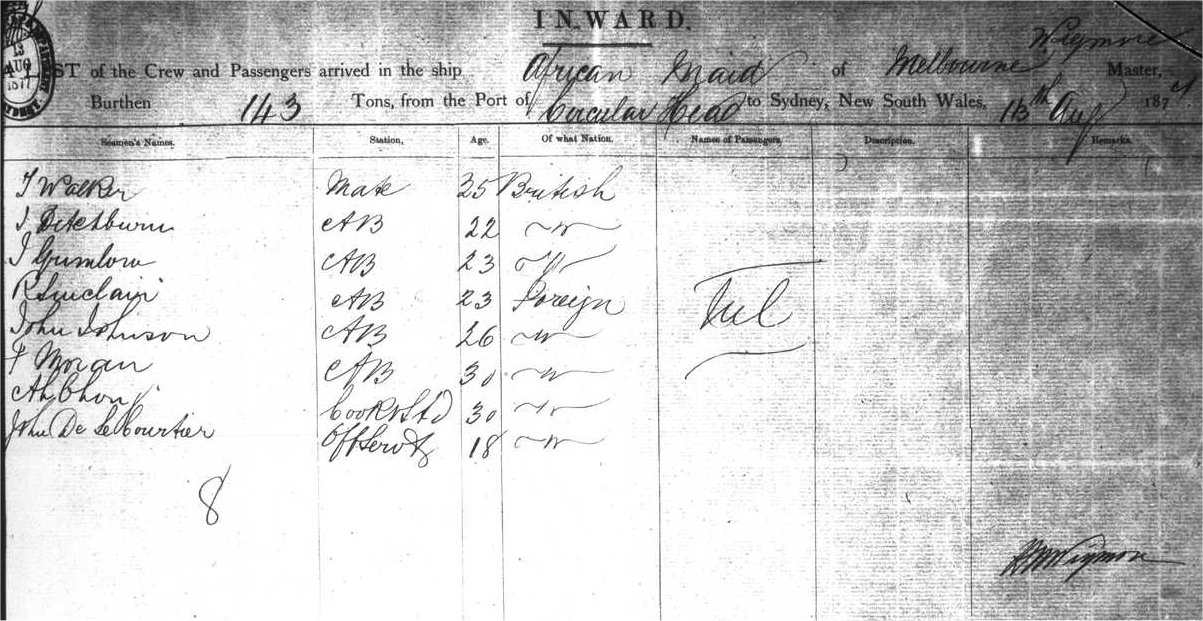 INWARD.
13
AUG
1877
LIST of the Crew and Passengers arrived in the ship African Maid of Melbourne Wigmore Master,
Burthen 143 Tons, from the Port of Circular Head to Sydney, New South Wales, 13th Aug 187
Seamen's Names. Station, Age. Of what Nation. Names of Passengers. Description. Remarks.
T Walker Mate 35 British
J Ditchburn AB 22 ~"~
J 
AB 23 ~"~
R Sinclair AB 23 Foreign Nil
John Johnson AB 26 ~"~
F Moran AB 30 ~"~
Ah Chon Cook & St'd 30 ~"~
John De 18 ~"~
8
Wigmore